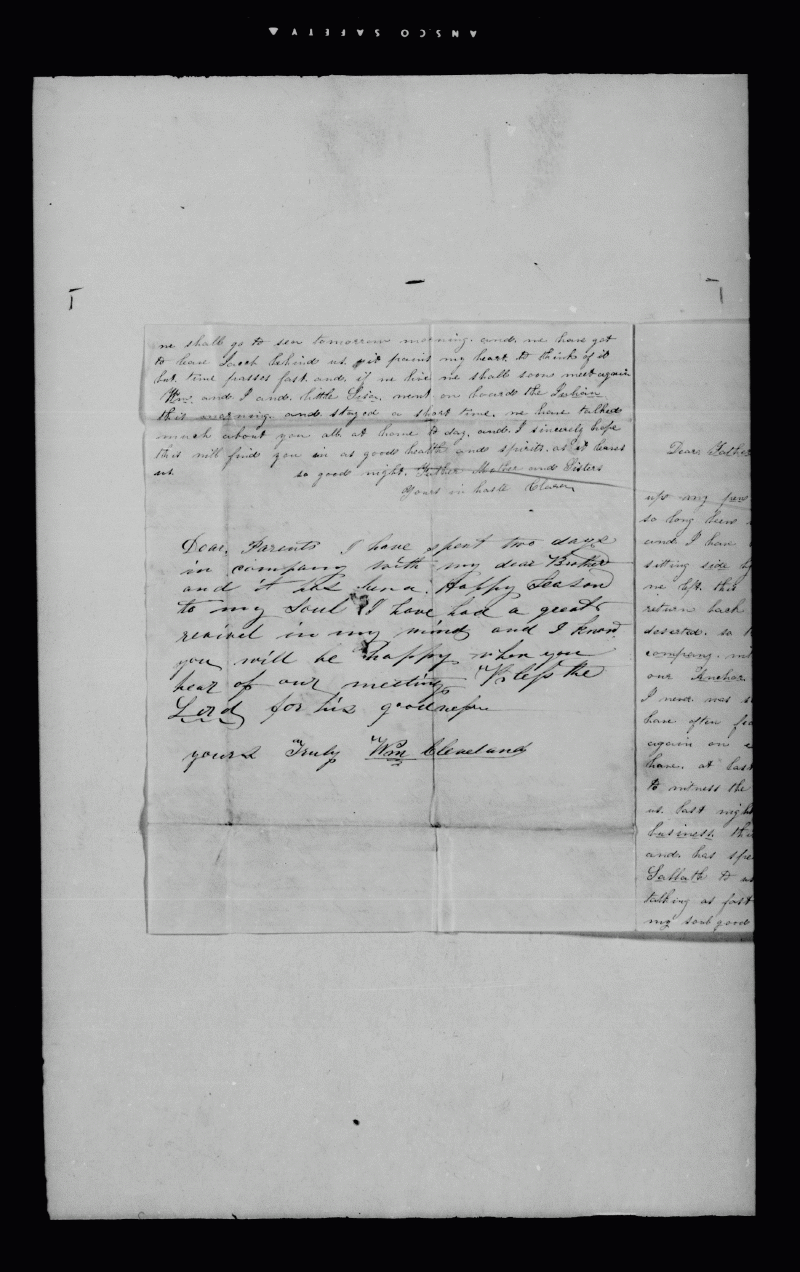 ANSCO SAFETY
we shall go to sea tomorrow morning. and. we have got
to leave behind us. it pains my heart. to think of it
but. time passes fast. and. if we live we shall soon meet again
Wm. and I and. little went on board the Julian
this morning. and stayed a short time. we have talked
much about you all at home to day. and. I sincerely hope
this will find you in as good health and spirits. as it leaves
us. so good night. Father Mother and Sisters
Yours in haste Clara
Dear. Parents I have spent two days
in company with my dear Brother
and it has been a. Happy Season
to my Soul I have had a great
revivel in my mind and I know
you will be happy when you
hear of our meeting Bless the
Lord for his goodness
yours Truly Wm Cleveland
Dear. Father
up my pen
so long been
and I have
sitting side by
me left. this
return back
deserted. so
company.
our Anchor.
I never was
have often
again on
have. at last
to witness the
us. last night
business.
and. has
Sabbath to
talking as fast
my soul good